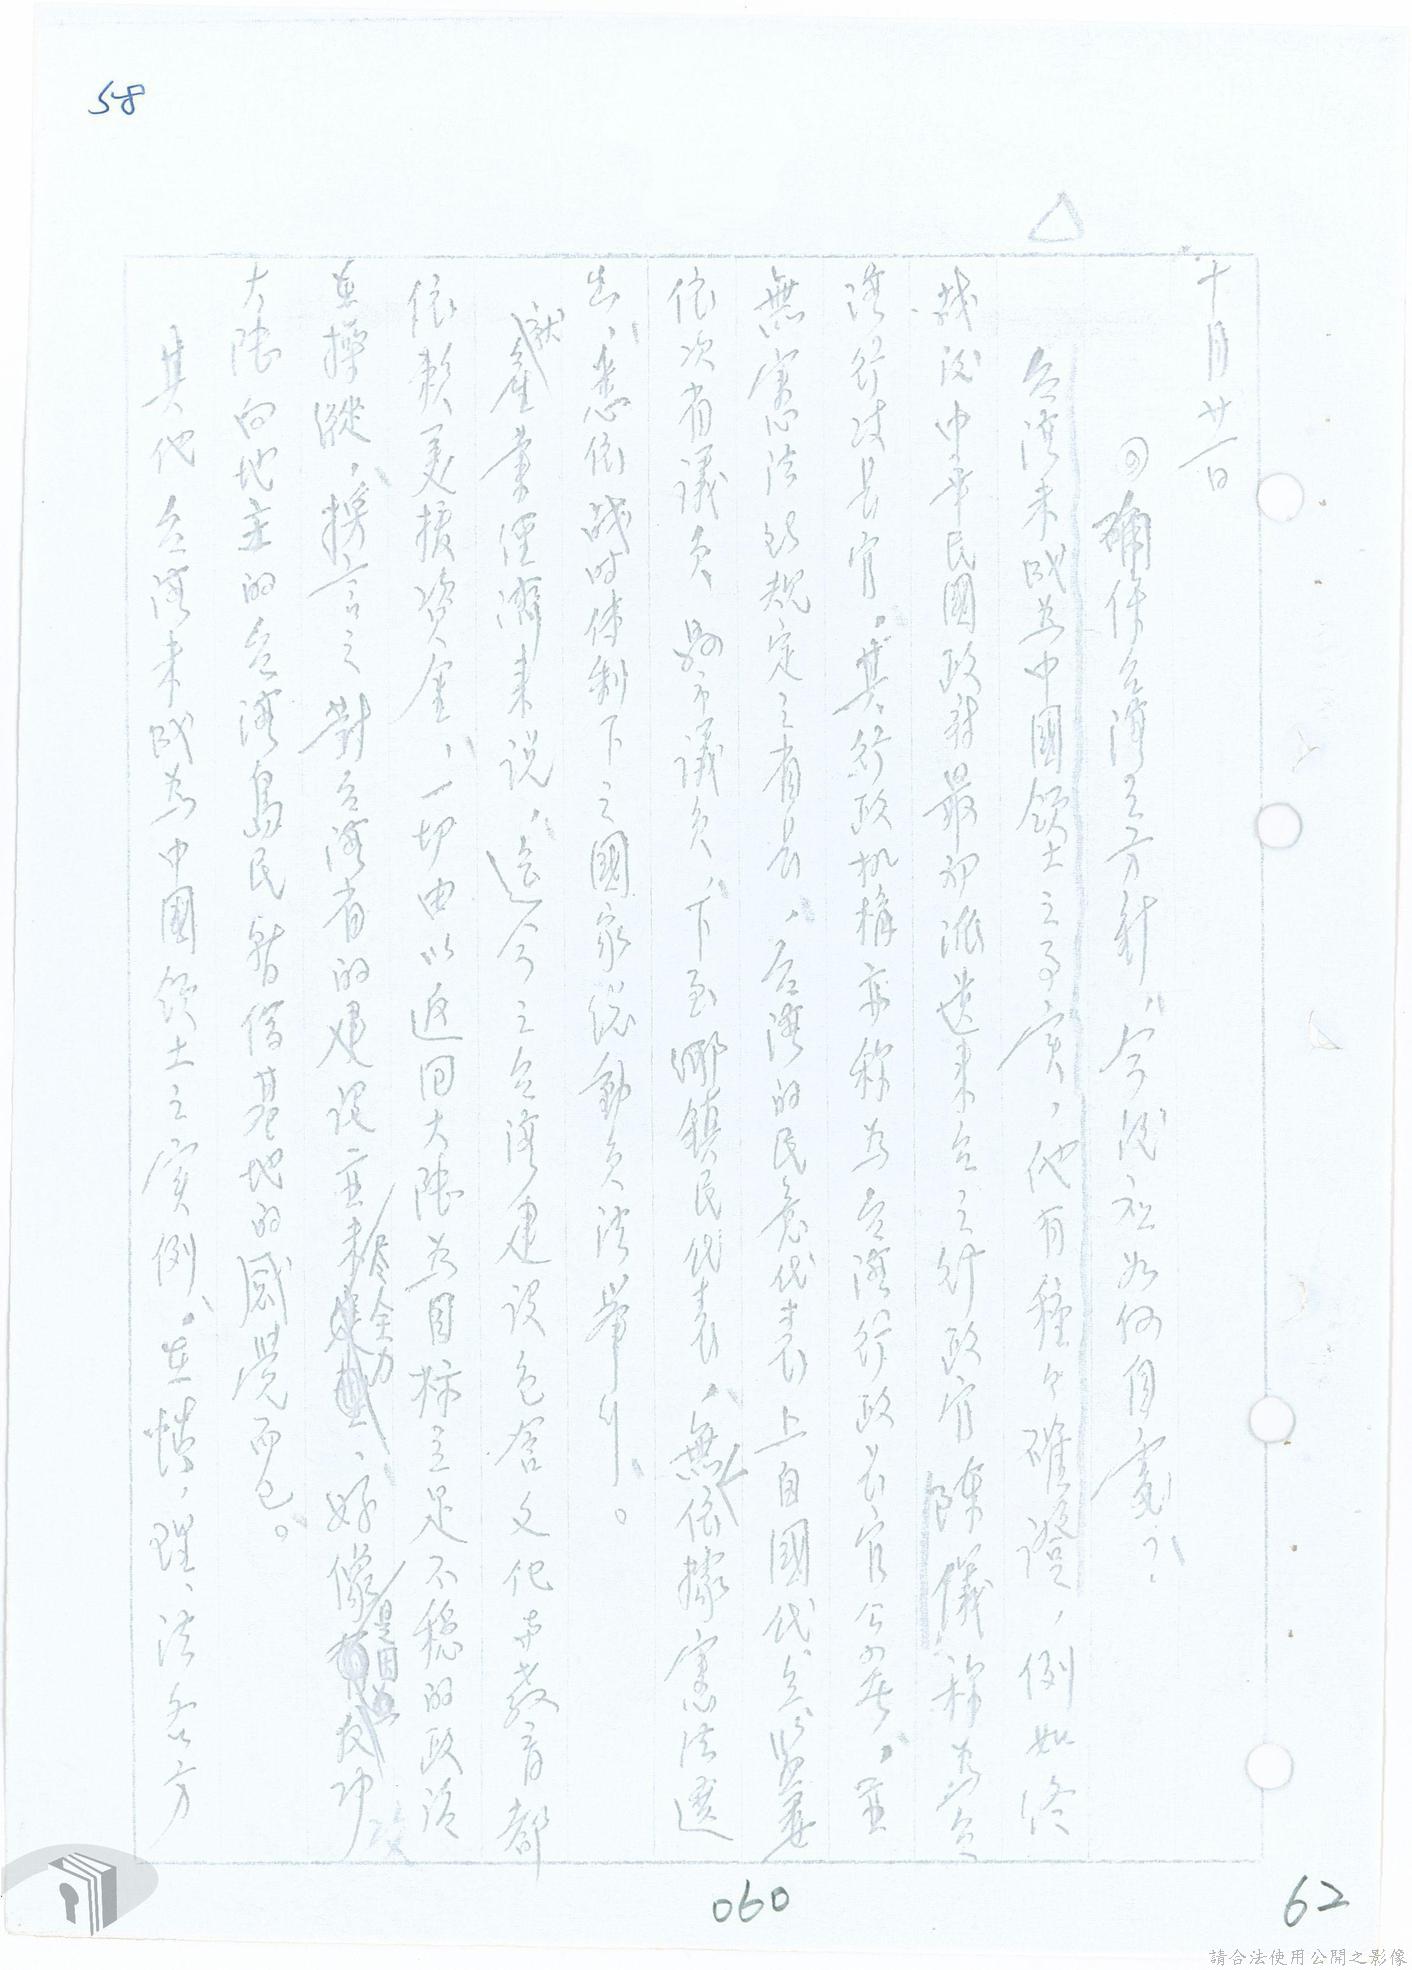 58
十月廿一日
⑨確保台灣之方針，今後私如何自處？
台灣未成為中國領土之事實，他有種々確證，例如終
戰後中華民國政府最初派遣來台之行政官陳儀稱為台
灣行政長官，其行政机構亦稱為台灣行政長官公署，並
無憲法所規定之省長，台灣的民意代表上自國代立監委
依次省議員縣市議員，下至鄉鎮民代表，無依據憲法選
出，悉依戰時体制下之國家總動員法舉行。
就產業經濟來說，迄今之台灣建設包含文化教育都
依賴美援資金，一切由以返回大陸為目標立足不穩的政治
在操縱，換言之對台灣省的建設並未盡全力，好像是因為反攻
大陸向地主的台灣島民暫借基地的感覺而已。
其他台灣未成為中國領土之實例，在情、理、法各方
060
62
請合法使用公開之影像